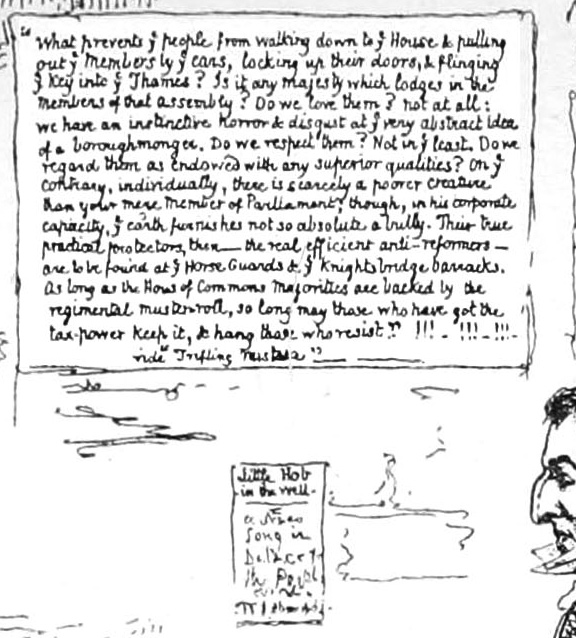 "What prevents ye people from walking down to ye House & pulling
out ye Members by ye ears, locking up their doors, & flinging
ye Key into ye Thames? Is it any majesty which lodges in the
members of that assembly? Do we love them? not at all:
we have an instinctive horror & disgust at ye very abstract idea
of a boroughmonger. Do we respect them? Not in ye least. Do we
regard them as endowed with any superior qualities? On ye
contrary, individually, there is scarcely a poorer creature
than your mere Member of Parliament; though, in his corporate
capacity, ye earth furnishes not so absolute a bully. Their true
practical protectors, then — the real efficient anti-reformers —
are to be found at ye Horse Guards & ye Knightsbridge barracks.
As long as the Hous of Commons Majorities are backed by the
regimental muster-roll, so long may those who have got the
tax-power keep it, & hang those who resist!" !!! - !!! - !!! -
vide "Trifling
little Hob
in the Well -
Song in